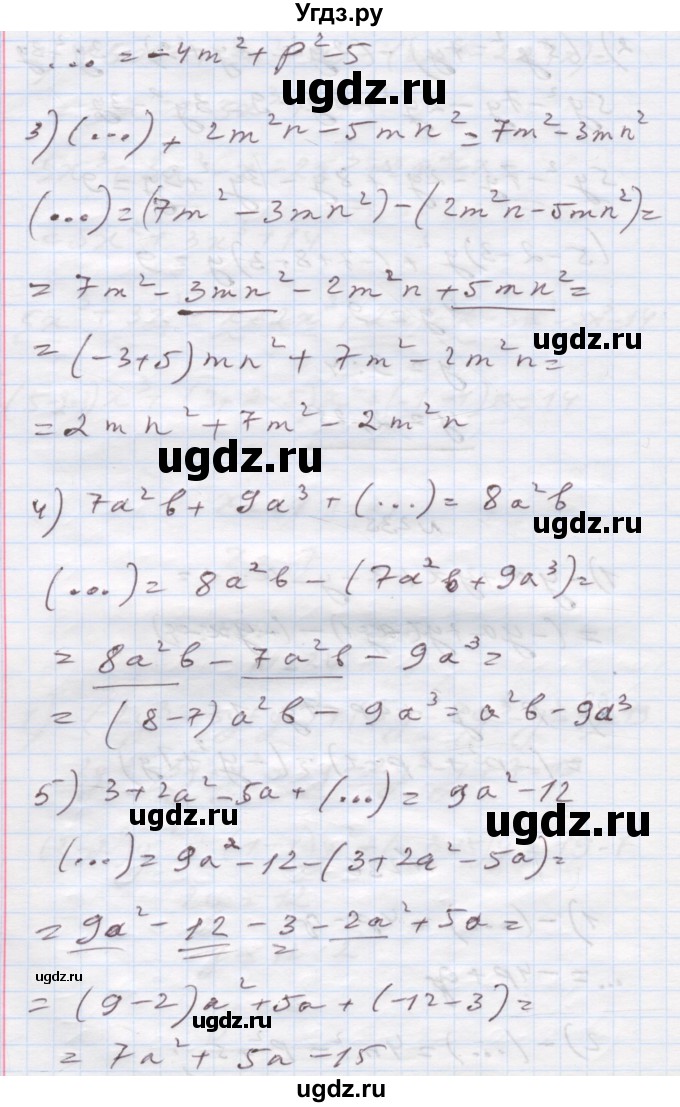 Угдз.ру
... = -4m² + p² - 5
ugdz.ru
3) (...) + 2m²n - 5mn² = 7m² - 3mn²
(...) = (7m² - 3mn²) - (2m²n - 5mn²) =
= 7m² - 3mn² - 2m²n + 5mn² =
ugdz.ru
= (-3+5)mn² + 7m² - 2m²n =
= 2mn² + 7m² - 2m²n
ugdz.ru
4) 7a²b + 9a³ + (...) = 8a²b
ugdz.ru
(...) = 8a²b - (7a²b + 9a³) =
= 8a²b - 7a²b - 9a³ =
= (8-7)a²b - 9a³ = a²b - 9a³
5) 3 + 2a² - 5a + (...) = 9a² - 12
ugdz.ru ugdz.ru
(...) = 9a² - 12 - (3 + 2a² - 5a) =
= 9a² - 12 - 3 - 2a² + 5a =
ugdz.ru
= (9-2)a² + 5a + (-12-3) =
ugdz.ru
= 7a² + 5a - 15
ugdz.ru